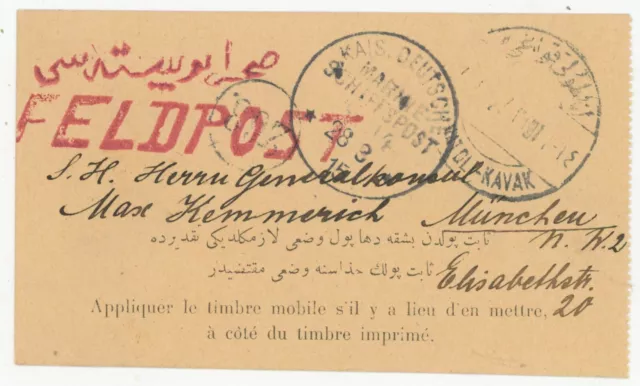 صحرا پوسته سی
FELDPOST
KAIS. DEUTSCHE
MARINE-
SCHIFFSPOST
28 3
15
KAVAK
S. H. Herrn Generalkonsul
Max Kemmerich München
N. W. 2
ثابت پولدن بشقه دها پول وضعی لازمكلدیكی تقدیرده
ثابت پولك حذاسنه وضعی مقتضیدر
Elisabethstr.
20
Appliquer le timbre mobile s'il y a lieu d'en mettre,
à côté du timbre imprimé.